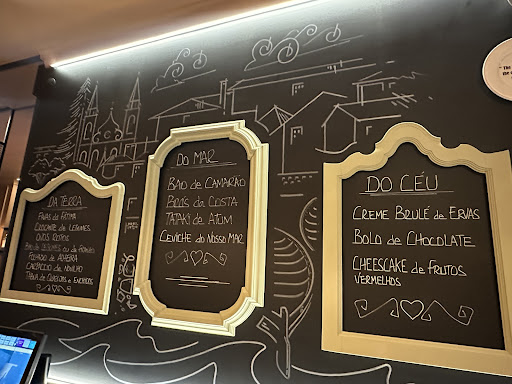 DA TERRA
FAVAS da FÁTIMA
CROCANTE de LEGUMES
OVOS ROTOS
FOLHADO de ALHEIRA
CARPACCIO de NOVILHO
TÁBUA de QUEIJOS e ENCHIDOS
DO MAR
BAO de CAMARÃO
BRÁS da COSTA
TATAKI de ATUM
CEVICHE do NOSSO MAR
DO CÉU
CREME BRULÉ de ERVAS
BOLO de CHOCOLATE
CHEESCAKE de FRUTOS
VERMELHOS